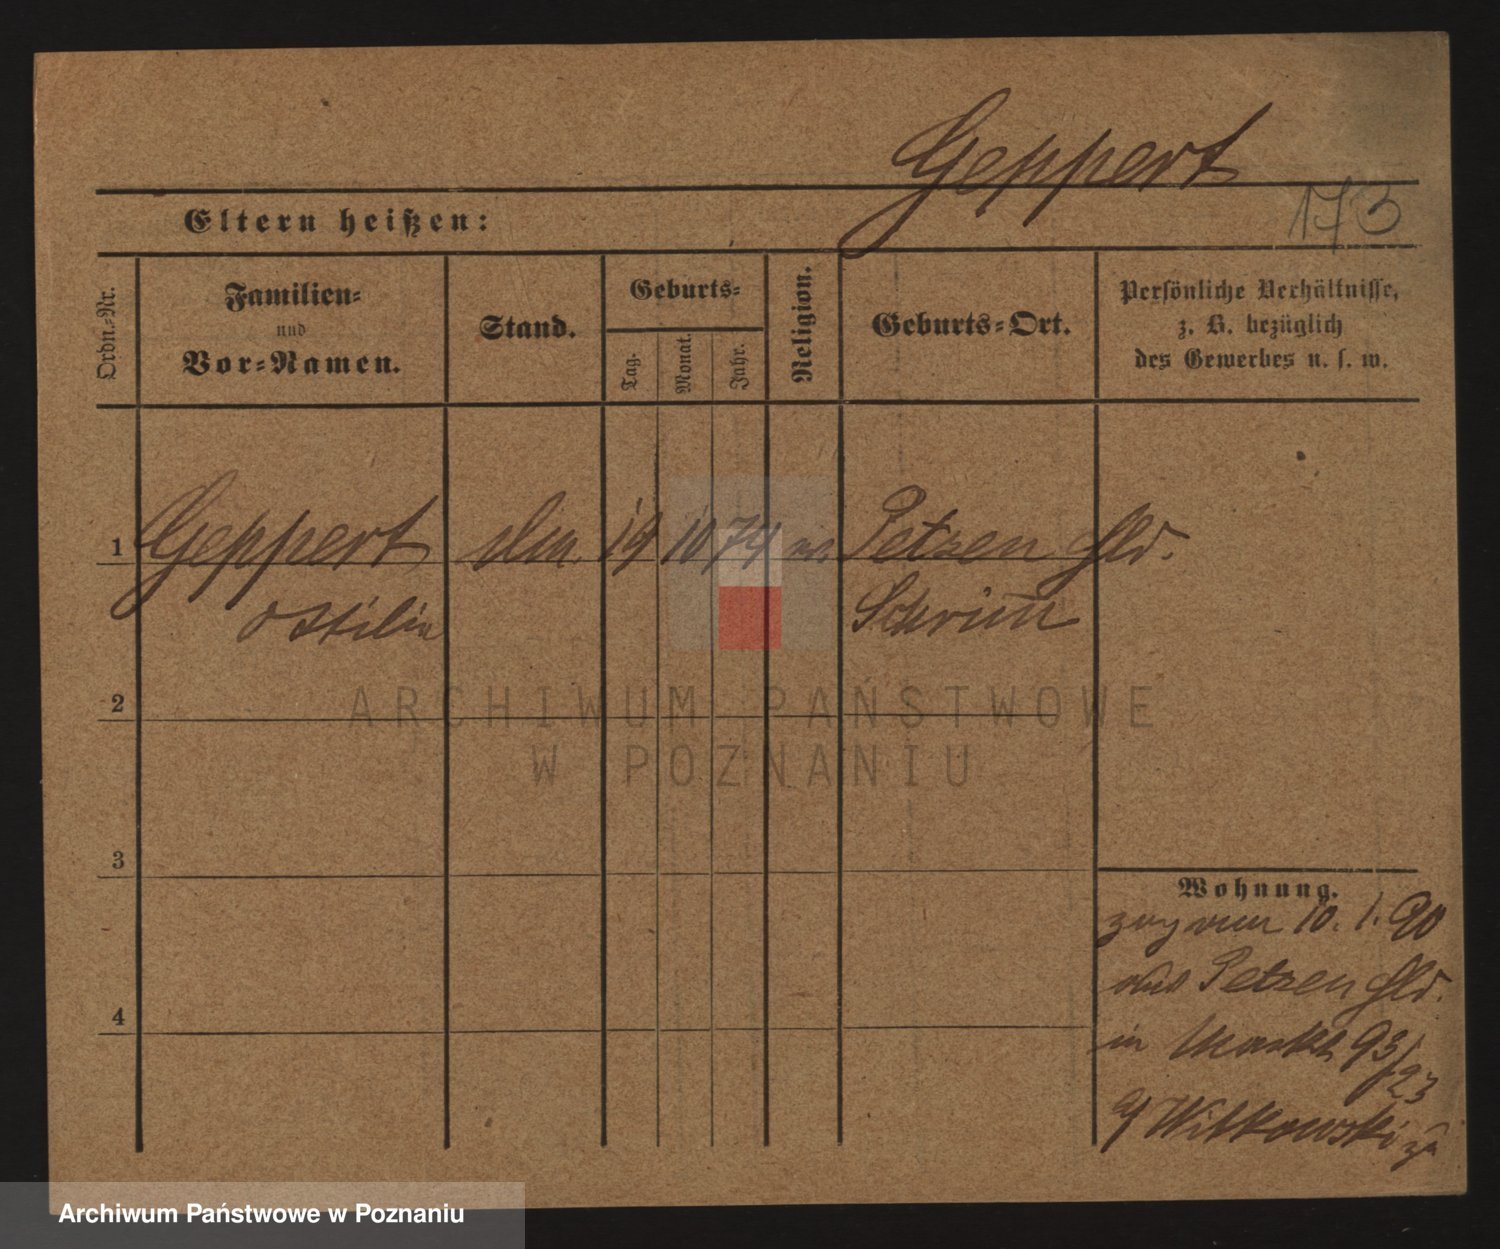 Geppert
173
Eltern heißen:
Ordn.-Nr.
Familien-
und
Vor-Namen.
Stand.
Geburts-
Tag.
Monat.
Jahr.
Religion.
Geburts-Ort.
Persönliche Verhältnisse,
z. B. bezüglich
des Gewerbes u. s. w.
1 Geppert 19 10 74 Petzen
Schrim
2
3
4
Wohnung.
10. 1. 90
aus Petzen
in Markt 93/23
Witkowski
ARCHIWUM PAŃSTWOWE
W POZNANIU
Archiwum Państwowe w Poznaniu